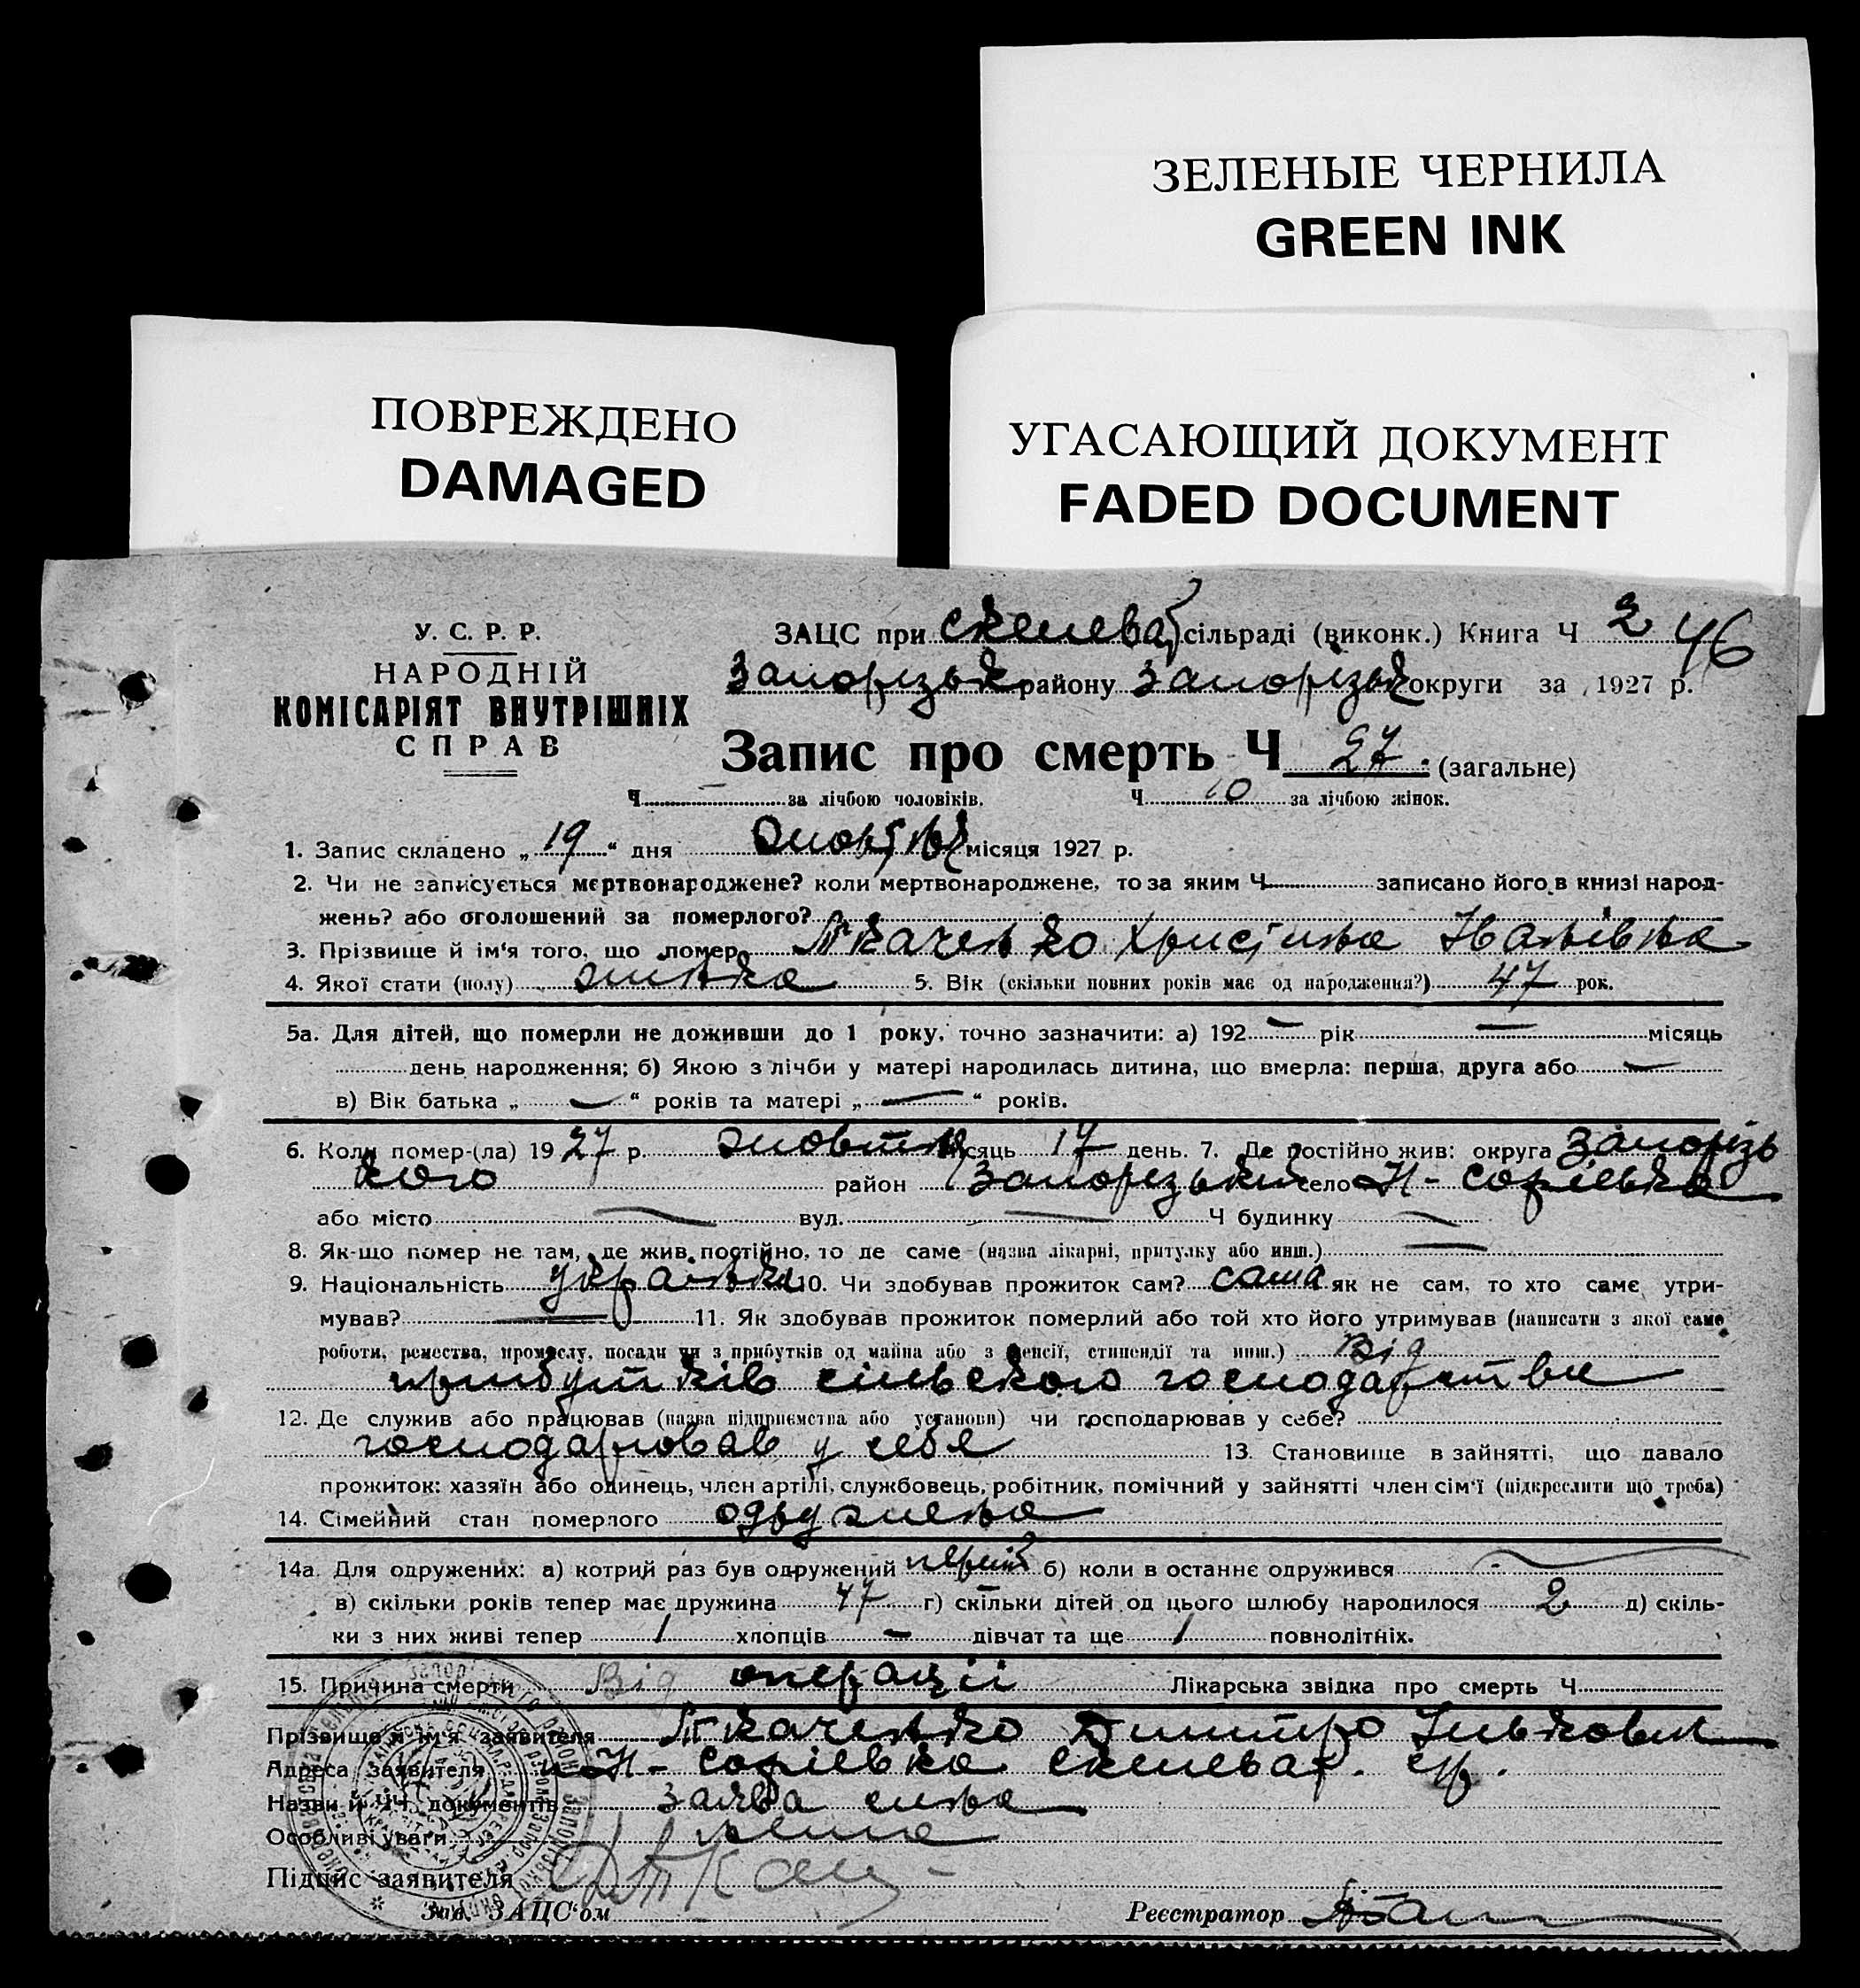 ЗЕЛЕНЫЕ ЧЕРНИЛА
GREEN INK
ПОВРЕЖДЕНО
DAMAGED
УГАСАЮЩИЙ ДОКУМЕНТ
FADED DOCUMENT
У. С. Р. Р.
НАРОДНІЙ
КОМІСАРІЯТ ВНУТРІШНІХ
СПРАВ
ЗАЦС при скелеват сільраді (виконк.) Книга Ч 2 46
Запорізьк району Запорізьк округи за 1927 р.
Запис про смерть Ч 27. (загальне)
Ч. за лічбою чоловіків. Ч 10 за лічбою жінок.
1. Запис складено „ 19 “ дня місяця 1927 р.
2. Чи не записується мертвонароджене? коли мертвонароджене, то за яким Ч. записано його в книзі народ-
жень? або оголошений за померлого?
3. Прізвище й ім'я того, що помер Ткаченко Христина Іванівна
4. Якої стати (полу) жінка 5. Вік (скільки повних років має од народження?) 47 рок.
5а. Для дітей, що померли не доживши до 1 року, точно зазначити: а) 192 — рік — місяць
день народження; б) Якою з лічби у матері народилась дитина, що вмерла: перша, друга або —
в) Вік батька „ — “ років та матері „ — “ років.
6. Коли помер-(ла) 19 27 р. жовтня місяць 17 день. 7. Де постійно жив: округа Запорізь
кого район Запорізький село Н-софіевка
або місто — вул. — Ч будинку —
8. Як-що помер не там, де жив постійно, то де саме (назва лікарні, притулку або инш.) —
9. Національність українка 10. Чи здобував прожиток сам? сама як не сам, то хто саме утри-
мував? — 11. Як здобував прожиток померлий або той хто його утримував (написати з якої саме
роботи, ремества, промислу, посади чи з прибутків од майна або з пенсії, стипендії та инш.) Від
прибутків сільского господарства
12. Де служив або працював (назва підприємства або установи) чи господарював у себе?
господарював у себе 13. Становище в зайнятті, що давало
прожиток: хазяїн або одинець, член артілі, службовець, робітник, помічний у зайнятті член сім'ї (підкреслити що треба)
14. Сімейний стан померлого одружена
14а. Для одружених: а) котрий раз був одружений б) коли в останнє одружився —
в) скільки років тепер має дружина 47 г) скільки дітей од цього шлюбу народилося 2 д) скіль-
ки з них живі тепер 1 хлопців — дівчат та ще 1 повнолітніх.
15. Причина смерти Від операції Лікарська звідка про смерть Ч
Прізвище й ім'я заявителя Ткаченко Дмитро
Адреса заявителя Н-софіевка скелеват. с/р.
Назви й ЧЧ документів заява сина
Особливі уваги нема
Підпис заявителя ДТкач
Зав. ЗАЦС'ом Реєстратор